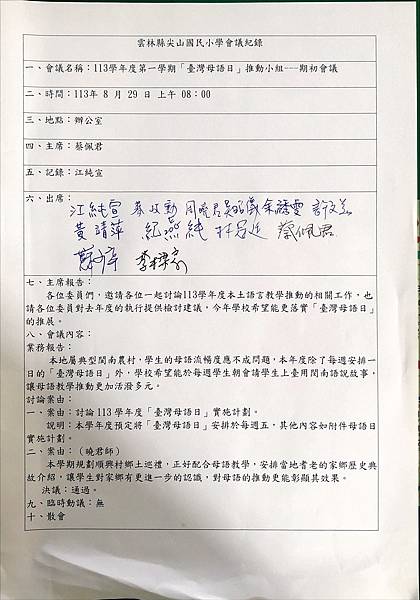 雲林縣尖山國民小學會議紀錄
一、會議名稱：113學年度第一學期「臺灣母語日」推動小組---期初會議
二、時間：113年 8 月 29 日 上午 08：00
三、地點：辦公室
四、主席：蔡佩君
五、記錄：江純宣
六、出席：
江純宣
黃靖萍 紀燕純 蔡佩君
七、主席報告：
各位委員們，邀請各位一起討論113學年度本土語言教學推動的相關工作，也
請各位委員對去年度的執行提供檢討建議，今年學校希望能更落實「臺灣母語日」
的推展。
八、會議內容：
業務報告：
本地屬典型閩南農村，學生的母語流暢度應不成問題，本年度除了每週安排一
日的「臺灣母語日」外，學校希望能於每週學生朝會請學生上臺用閩南語說故事，
讓母語教學推動更加活潑多元。
討論案由：
一、案由：討論113學年度「臺灣母語日」實施計劃。
說明：本學年度預定將「臺灣母語日」安排於每週五，其他內容如附件母語日
實施計劃。
二、案由：（曉君師）
本學期規劃順興村鄉土巡禮，正好配合母語教學，安排當地耆老的家鄉歷史典
故介紹，讓學生對家鄉有更進一步的認識，對母語的推動更能彰顯其效果。
決議：通過。
九、臨時動議：無
十、散會